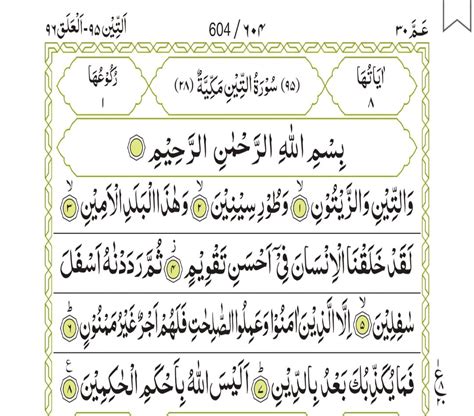 عَمَّ ٣٠ 604 / ٦٠٤ اَلتِّيْن ٩٥-اَلْعَلَق ٩٦
اٰيَاتُهَا ٨ (٩٥) سُوْرَةُ التِّيْنِ مَكِّيَّةٌ (٢٨) رُكُوْعُهَا ١
بِسْمِ اللّٰهِ الرَّحْمٰنِ الرَّحِيْمِ
وَالتِّيْنِ وَالزَّيْتُوْنِ ۙ‏﴿١﴾ وَطُوْرِ سِيْنِيْنَ ۙ‏﴿٢﴾ وَهٰذَا الْبَلَدِ الْاَمِيْنِ ۙ‏﴿٣﴾
لَقَدْ خَلَقْنَا الْاِنْسَانَ فِىْۤ اَحْسَنِ تَقْوِيْمٍ ۖ‏﴿٤﴾ ثُمَّ رَدَدْنٰهُ اَسْفَلَ
سٰفِلِيْنَ ۙ‏﴿٥﴾ اِلَّا الَّذِيْنَ اٰمَنُوْا وَعَمِلُوا الصّٰلِحٰتِ فَلَهُمْ اَجْرٌ غَيْرُ مَمْنُوْنٍ ؕ‏﴿٦﴾
فَمَا يُكَذِّبُكَ بَعْدُ بِالدِّيْنِ ؕ‏﴿٧﴾ اَلَيْسَ اللّٰهُ بِاَحْكَمِ الْحٰكِمِيْنَ ﴿٨﴾ ع